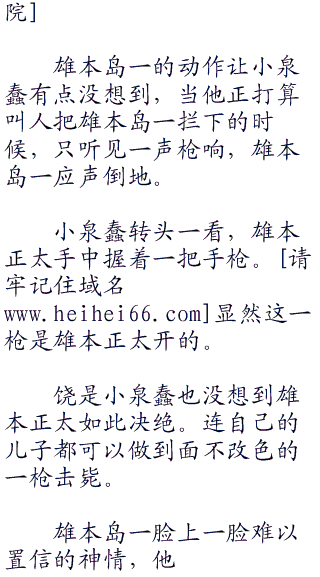 院]
雄本岛一的动作让小泉
蠢有点没想到，当他正打算
叫人把雄本岛一拦下的时
候，只听见一声枪响，雄本
岛一应声倒地。
小泉蠢转头一看，雄本
正太手中握着一把手枪。[请
牢记住域名
www.heihei66.com]显然这一
枪是雄本正太开的。
饶是小泉蠢也没想到雄
本正太如此决绝。连自己的
儿子都可以做到面不改色的
一枪击毙。
雄本岛一脸上一脸难以
置信的神情，他